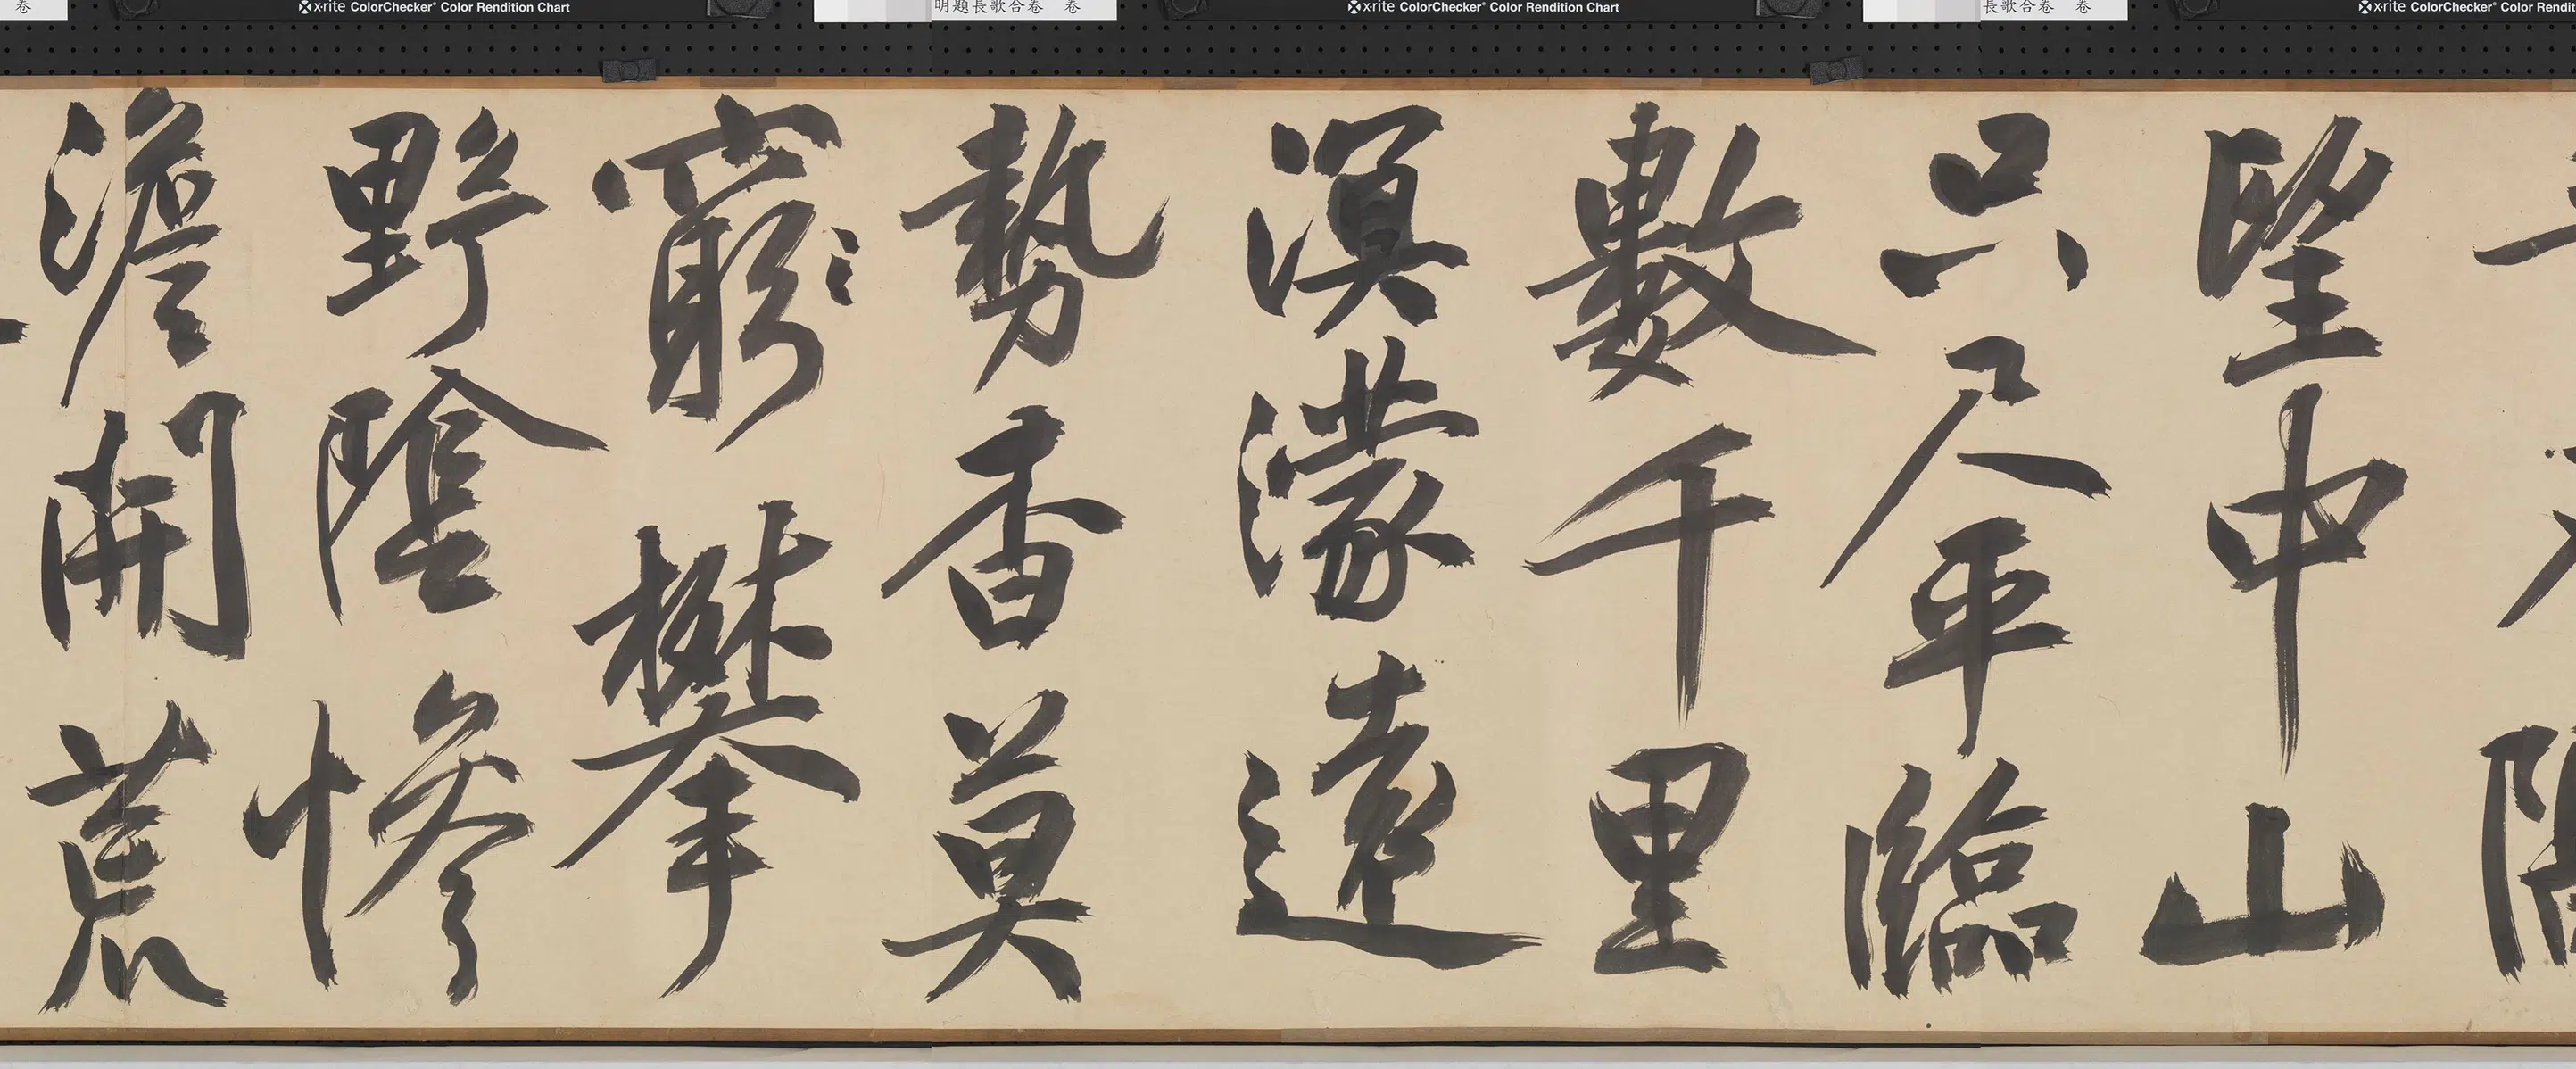 卷
x·rite ColorChecker Color Rendition Chart
明題長歌合卷 卷
x·rite ColorChecker Color Rendition Chart
長歌合卷 卷
x·rite ColorChecker Color Rendit
望中山
只尺平臨
數千里
溟濛遠
勢香莫
窮攀
野陰慘
澹開荒